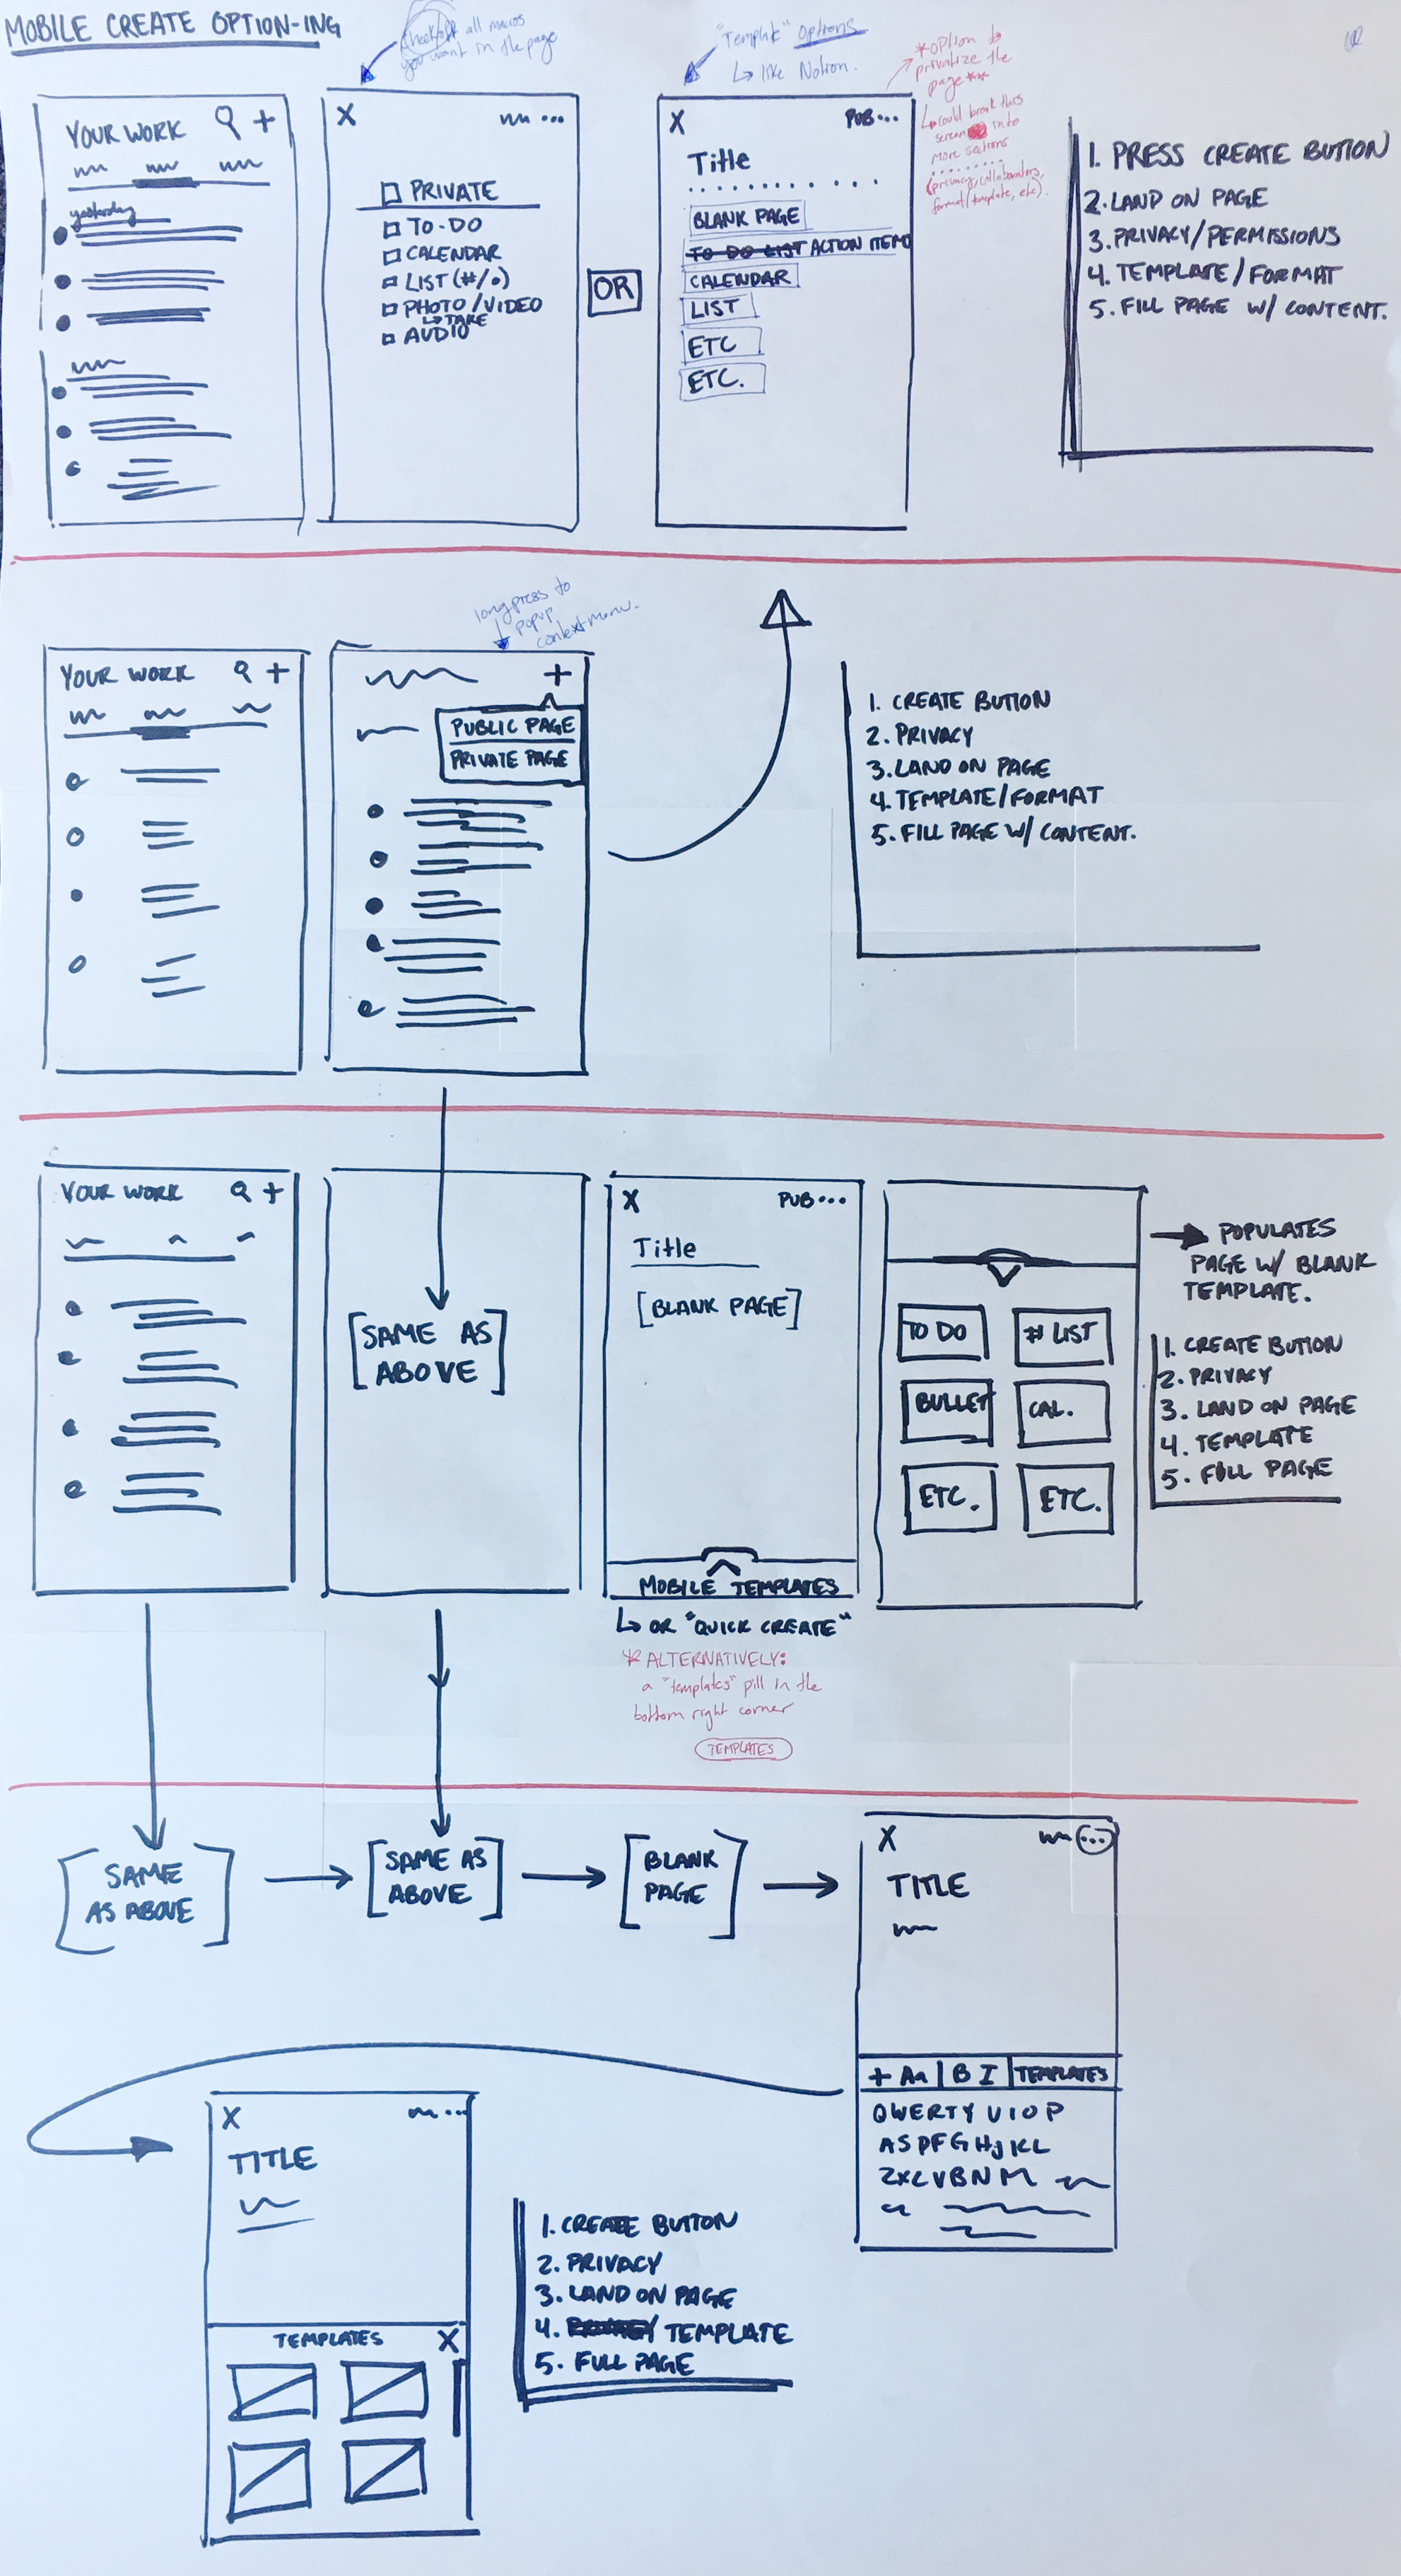 MOBILE CREATE OPTION-ING
Check off all macros
you want in the page
"Template" Options
↳ like Notion.
*option to
privatize the
page**
↳ could break this
screen into
more sections
(privacy, collaborators,
format/template, etc).
YOUR WORK +
yesterday
X ...
PRIVATE
TO-DO
CALENDAR
LIST (#/•)
PHOTO/VIDEO
↳ TAKE
AUDIO
OR
X PUB...
Title
BLANK PAGE
TO DO LIST ACTION ITEMS
CALENDAR
LIST
ETC
ETC.
1. PRESS CREATE BUTTON
2. LAND ON PAGE
3. PRIVACY/PERMISSIONS
4. TEMPLATE/FORMAT
5. FILL PAGE W/ CONTENT.
long press to
popup
context menu.
YOUR WORK +
+
PUBLIC PAGE
PRIVATE PAGE
1. CREATE BUTTON
2. PRIVACY
3. LAND ON PAGE
4. TEMPLATE/FORMAT
5. FILL PAGE W/ CONTENT.
YOUR WORK +
[SAME AS
ABOVE]
X PUB...
Title
[BLANK PAGE]
MOBILE TEMPLATES
↳ OR "QUICK CREATE"
* ALTERNATIVELY:
a "templates" pill in the
bottom right corner
TEMPLATES
TO DO
# LIST
BULLET
CAL.
ETC.
ETC.
→ POPULATES
PAGE W/ BLANK
TEMPLATE.
1. CREATE BUTTON
2. PRIVACY
3. LAND ON PAGE
4. TEMPLATE
5. FULL PAGE
[SAME
AS ABOVE]
[SAME AS
ABOVE]
[BLANK
PAGE]
X ...
TITLE
+ Aa | B I | TEMPLATES
QWERTYUIOP
ASDFGHJKL
ZXCVBNM
X ...
TITLE
TEMPLATES X
1. CREATE BUTTON
2. PRIVACY
3. LAND ON PAGE
4. TEMPLATE
5. FULL PAGE